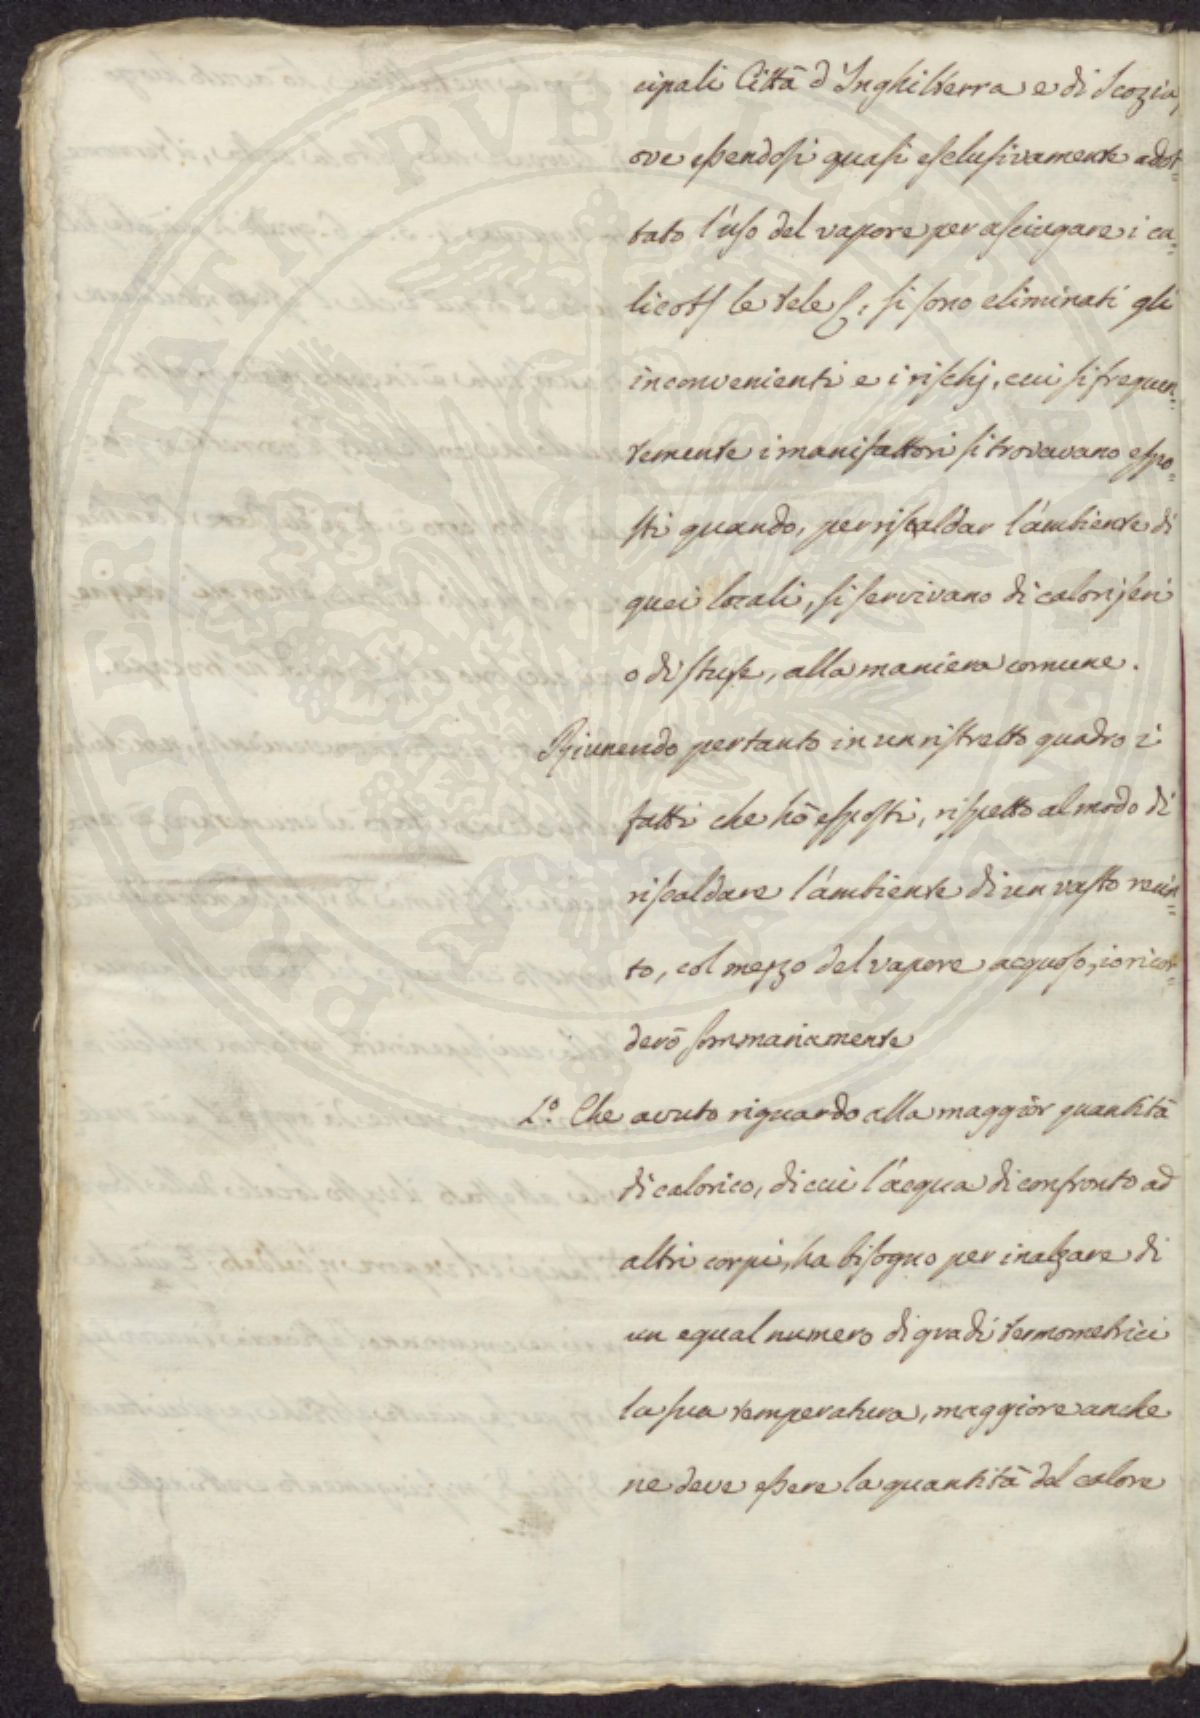 cipali Città d'Inghilterra e di Scozia,
ove essendosi quasi esclusivamente adot=
tato l'uso del vapore per asciugare i ca=
licots le tele &; si sono eliminati gli
inconvenienti e i rischj, cui sì frequen=
temente i manifattori si trovavano espo=
sti quando, per riscaldar l'ambiente di
quei locali, si servivano di caloriferi
o di stufe, alla maniera comune.
Riunendo pertanto in un ristretto quadro i
fatti che hò esposti, rispetto al modo di
riscaldare l'ambiente di un vasto recin=
to, col mezzo del vapore acquoso, io ricor=
derò sommariamente
1.° Che avuto riguardo alla maggior quantità
di calorico, di cui l'acqua di confronto ad
altri corpi, ha bisogno per inalzare di
un egual numero di gradi termometrici
la sua temperatura, maggiore anche
ne deve essere la quantità del calore